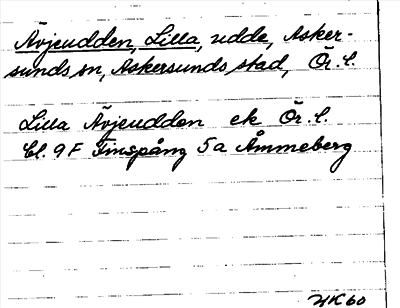 Ävjeudden, Lilla, udde, Asker-
sunds sn, Askersunds stad, Ör. l.
Lilla Ävjeudden ek Ör. l.
bl. 9 F Finspång 5a Åmmeberg
HK 60